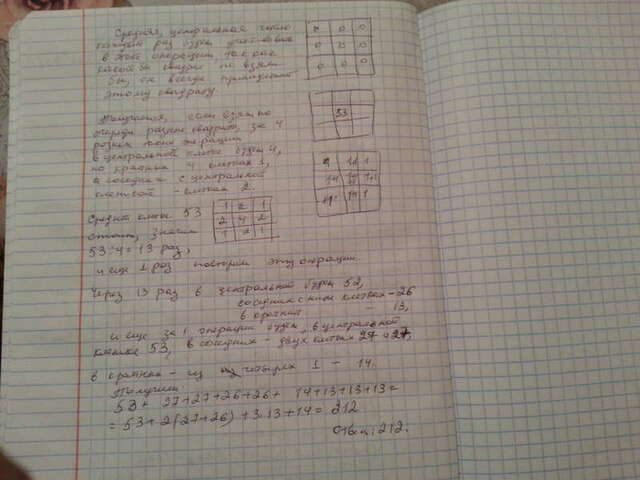 Средняя, центральная число
каждый раз будет участвовать
в этой операции, так как
какой квадрат не взяли
бы, он всегда принадлежит
этому квадрату.
0 0
0 0 0
0 0 0
Получается, если взять по
очереди разные квадраты, за 4
разных таких операции
в центральной клетке будет 4,
по крайних 4 клетках 1,
в соседних с центральной
клеткой - клетках 2.
53
1 2 1
2 4 2
1 2 1
Средней клетке 53
стоит, значит
53:4 = 13 раз,
и еще 1 раз повторим эту операцию.
Через 13 раз в центральной будет 52,
соседних с ним клетках - 26
в крайних - 13,
и еще за 1 операцию будет, в центральной
клетке 53, в соседних - двух клетках 27 и 27,
в крайних - из четырех 1 - 14.
Получим
53 + 27+27+26+26 + 14+13+13+13 =
= 53 + 2(27+26) + 3·13 + 14 = 212
Ответ: 212.